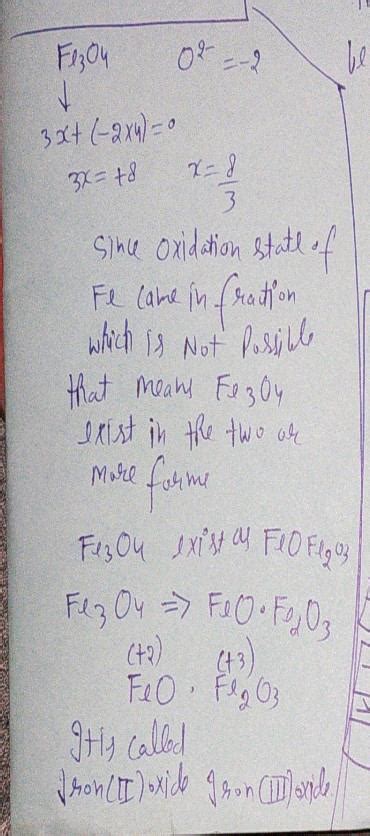 Fe3O4 O2- = -2
↓
3x+(-2x4)=0
3x = +8 x = 8/3
Since oxidation state of
Fe came in fraction
which is Not Possible
that means Fe3O4
exist in the two or
more forms
Fe3O4 exist as FeOFe2O3
Fe3O4 => FeO・Fe2O3
(+2) (+3)
FeO . Fe2O3
It is called
Iron(II)oxide Iron(III)oxide
be